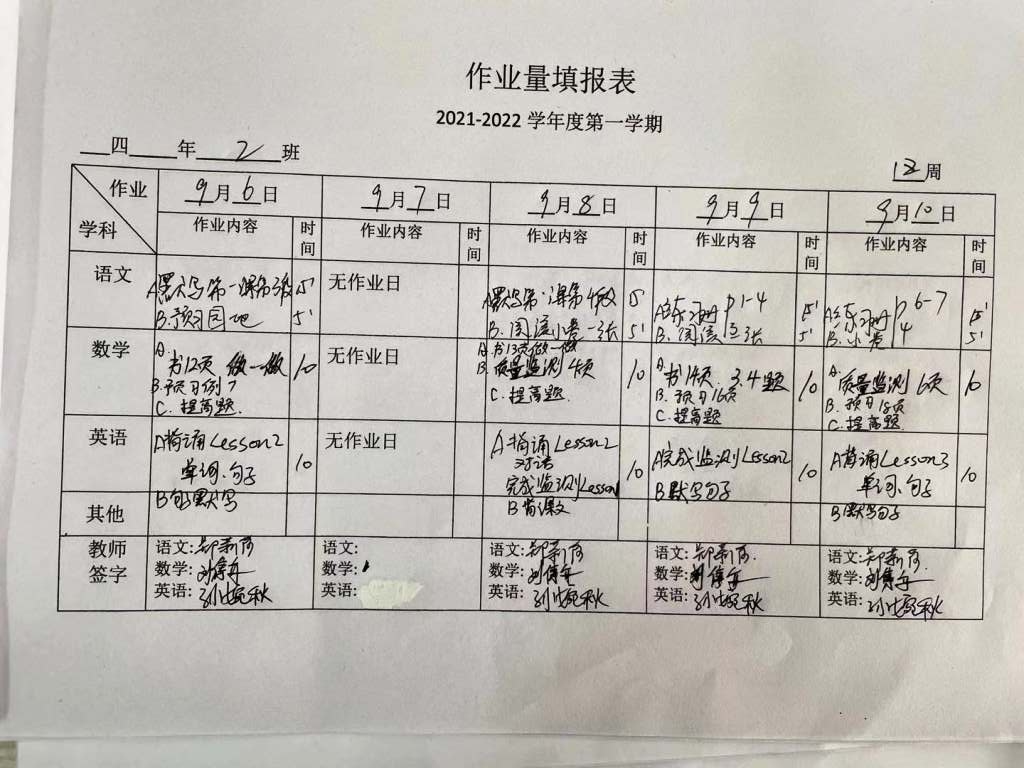 作业量填报表
2021-2022 学年度第一学期
四 年 2 班
周
作业
学科
9月6日 9月7日 9月8日 9月9日 9月10日
作业内容 时间 作业内容 时间 作业内容 时间 作业内容 时间 作业内容 时间
语文
A默写第一课第3段 5'
B.预习园地 5'
无作业日
A默写第一课第4段 5'
B.阅读小卷一张 5'
A练习册 P1-4 15'
B.阅读三张 5'
A练习册 P6-7 15'
B.小卷 5'
数学
A.
书12页 做一做 10
B.预习例7
C.提高题.
无作业日
A.书13页做一做
B.质量监测 4页 10
C.提高题.
A.
书14页. 3.4题 10
B.预习16页
C.提高题
A.
质量监测 6页 10
B.预习18页
C.提高题
英语
A背诵Lesson2
单词、句子 10
B句子默写
无作业日
A背诵Lesson2
对话
完成监测Lesson1 10
B背课文
A完成监测Lesson2 10
B默写句子
A背诵Lesson3
单词、句子 10
B默写句子
其他
教师
签字
语文: 语文: 语文: 语文: 语文:
数学: 数学: 数学: 数学: 数学:
英语: 英语: 英语: 英语: 英语: